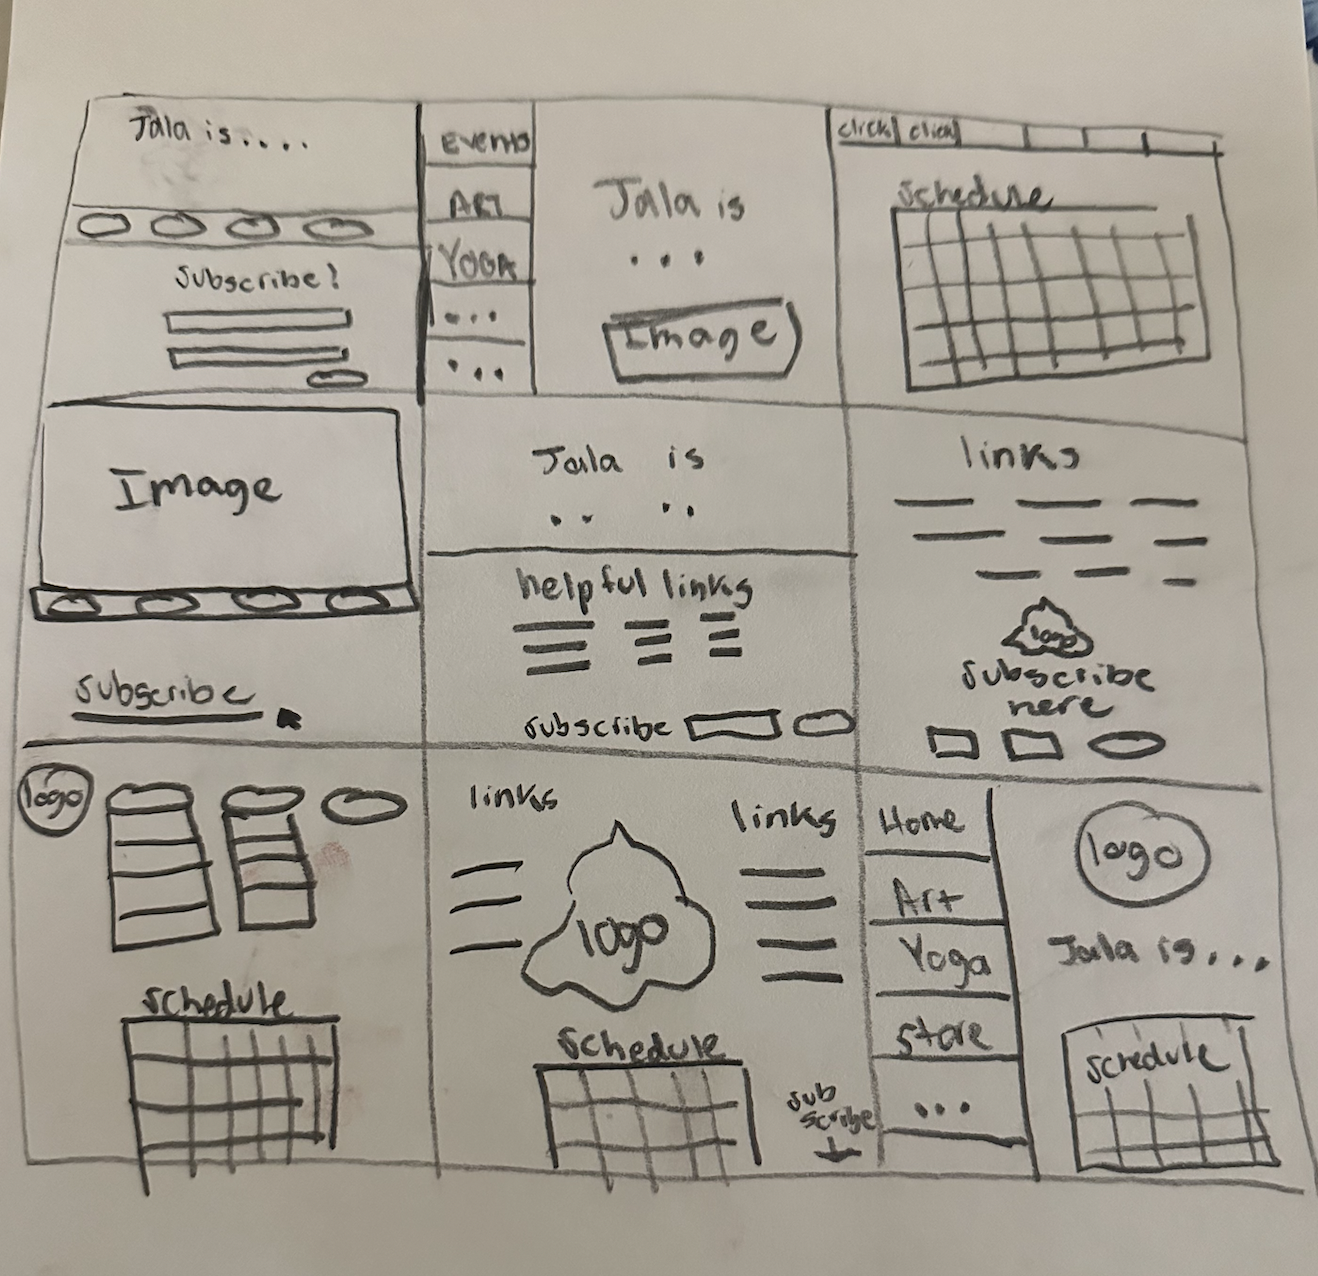 Jala is....
Subscribe!
Events
ART
YOGA
...
...
Jala is
...
Image
click click
Schedule
Image
subscribe
Jala is
.. ..
helpful links
subscribe
links
logo
subscribe
here
logo
schedule
links
links
logo
Schedule
sub
scribe
Home
Art
Yoga
Store
...
logo
Jala is...
Schedule